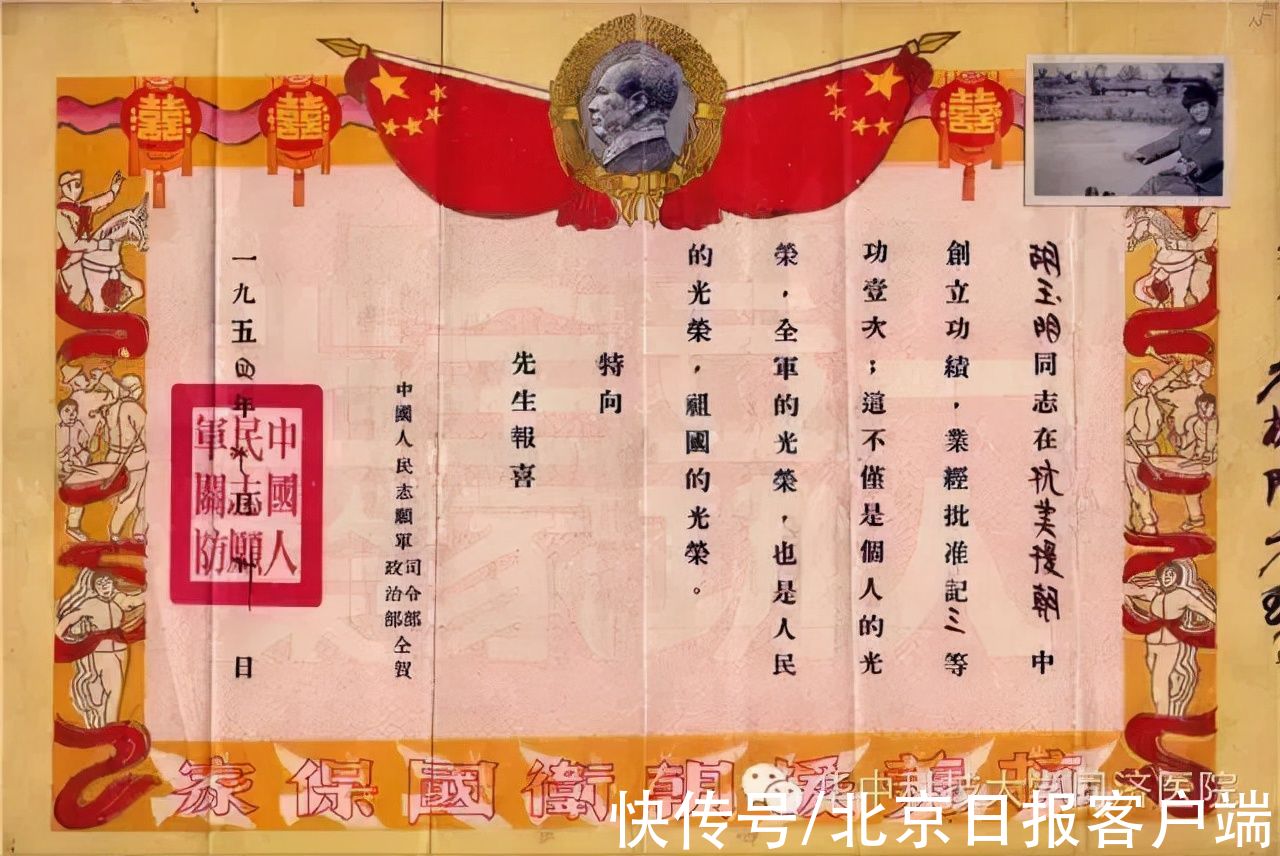 囍
囍
囍
胡玉明同志在抗美援朝中
創立功績，業經批准記三等
功壹次；這不僅是個人的光
榮，全軍的光榮，也是人民
的光榮，祖國的光榮。
特向
先生報喜
中國人民志願軍
司令部
政治部
仝賀
一九五四年 日
中國人
民志願
軍關防
抗美援朝衛國保家
华中科技大学同济医院
快传号/北京日报客户端